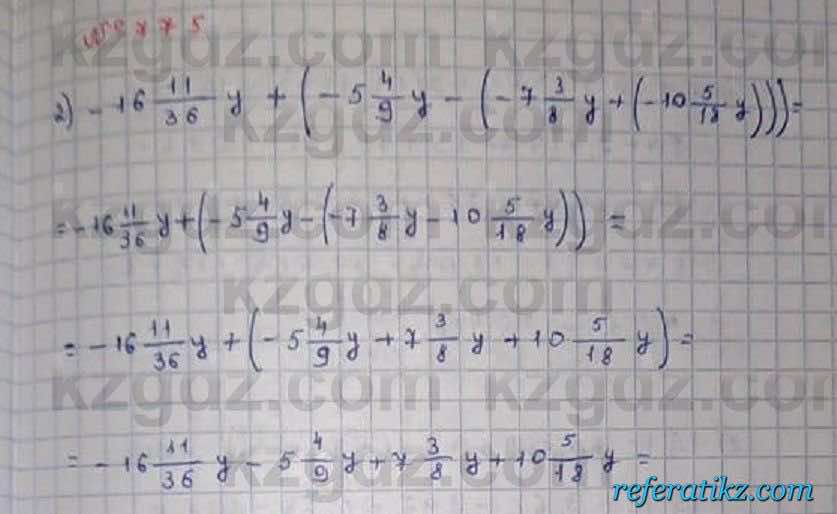 2) -16 11/36 y + (-5 4/9 y - (-7 3/8 y + (-10 5/18 y))) =
= -16 11/36 y + (-5 4/9 y - (-7 3/8 y - 10 5/18 y)) =
= -16 11/36 y + (-5 4/9 y + 7 3/8 y + 10 5/18 y) =
= -16 11/36 y - 5 4/9 y + 7 3/8 y + 10 5/18 y =
kzgdz.com
referatikz.com